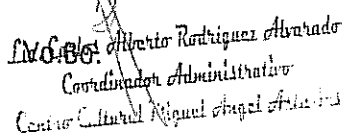 Vo.Bo.
Lic. Carlos Alberto Rodriguez Alvarado
Coordinador Administrativo
Centro Cultural Miguel Angel